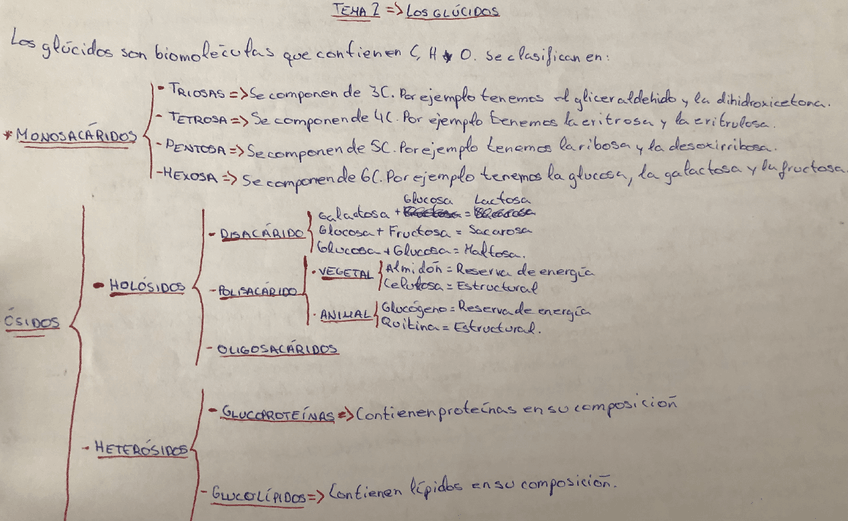 TEMA 2 => LOS GLÚCIDOS
Los glúcidos son biomoléculas que contienen C, H y O. Se clasifican en:
* MONOSACÁRIDOS
- TRIOSAS => Se componen de 3C. Por ejemplo tenemos el gliceraldehido y la dihidroxicetona.
- TETROSA => Se componen de 4C. Por ejemplo tenemos la eritrosa y la eritrulosa.
- PENTOSA => Se componen de 5C. Por ejemplo tenemos la ribosa y la desoxirribosa.
- HEXOSA => Se componen de 6C. Por ejemplo tenemos la glucosa, la galactosa y la fructosa.
ÓSIDOS
- HOLÓSIDOS
- DISACÁRIDO
Galactosa + Glucosa = Lactosa
Glucosa + Fructosa = Sacarosa
Glucosa + Glucosa = Maltosa.
- POLISACÁRIDO
- VEGETAL
Almidón = Reserva de energía
Celulosa = Estructural
- ANIMAL
Glucógeno = Reserva de energía
Quitina = Estructural.
- OLIGOSACÁRIDOS
- HETERÓSIDOS
- GLUCOPROTEÍNAS => Contienen proteínas en su composición
- GLUCOLÍPIDOS => Contienen lípidos en su composición.